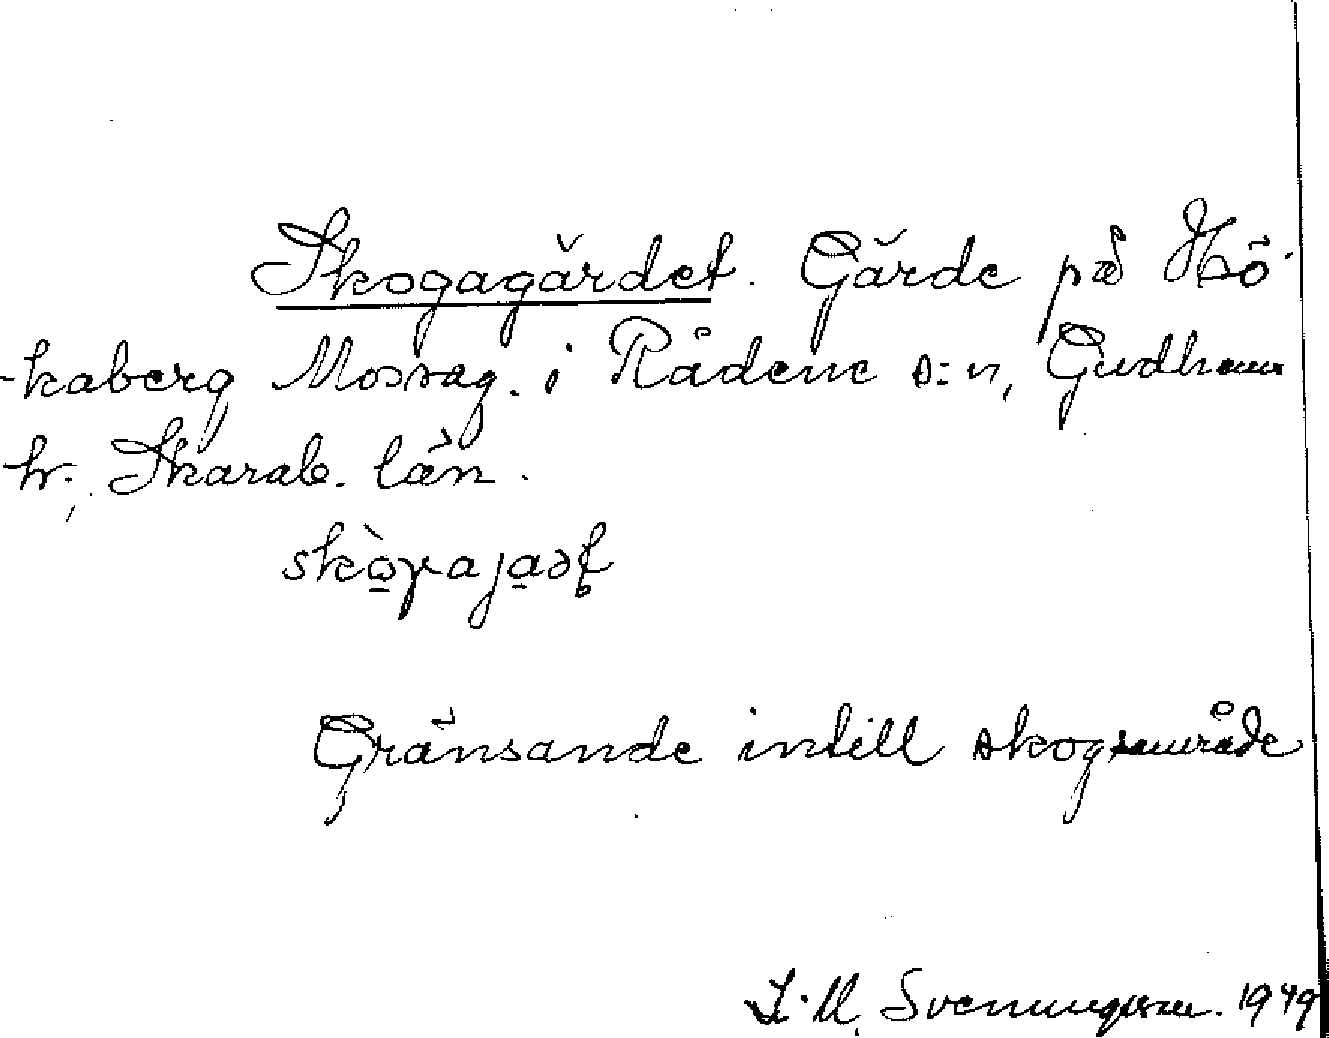 Skogagärdet. Gärde på Hö-
kaberg Mossag. i Rådene s:n, Gudhems
hr., Skarab. län.
Gränsande intill skogsområde
S. M. Svenungsson. 1949